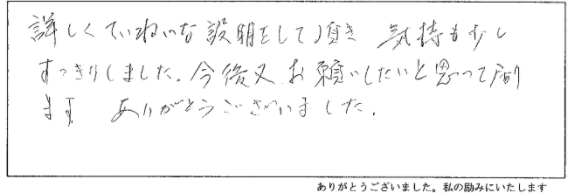 詳しくていねいな説明をして頂き 気持も少し
すっきりしました。今後又お願いしたいと思って居り
ます ありがとうございました。
ありがとうございました。私の励みにいたします